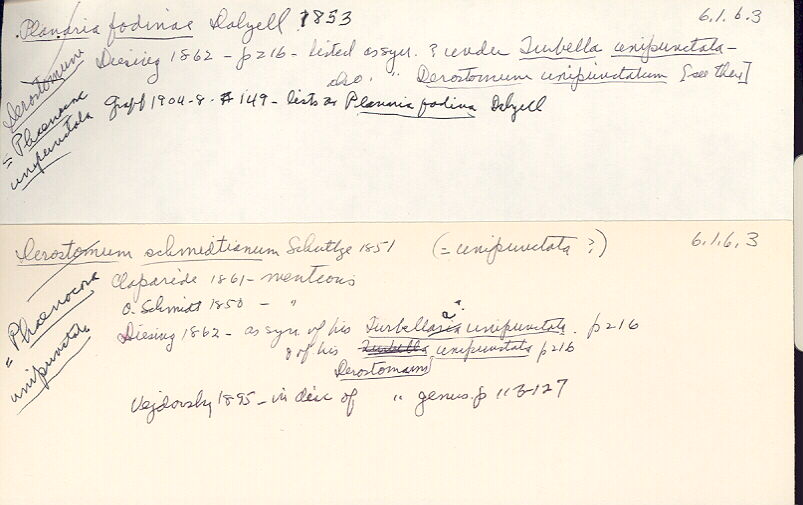 Planaria fodinae Dalyell 1853 6.1.6.3
Derostomum
= Phaenocora
unipunctata
Diesing 1862 - p 216 - listed as syn. ? under Turbella unipunctata -
also " Derostomum unipunctatum [see they]
Graff 1904-8 - # 149 - lists as Planaria fodina Dalyell
Derostomum schmidtianum Schultze 1851 (= unipunctata ?) 6.1.6.3
= Phaenocora
unipunctata
Claparède 1861 - mentions
O. Schmidt 1850 - "
Diesing 1862 - as syn of his Turbella unipunctata. p 216
& of his Turbella unipunctata p 216
Derostomum
Vejdovsky 1895 - in disc of " genus. p 113-127